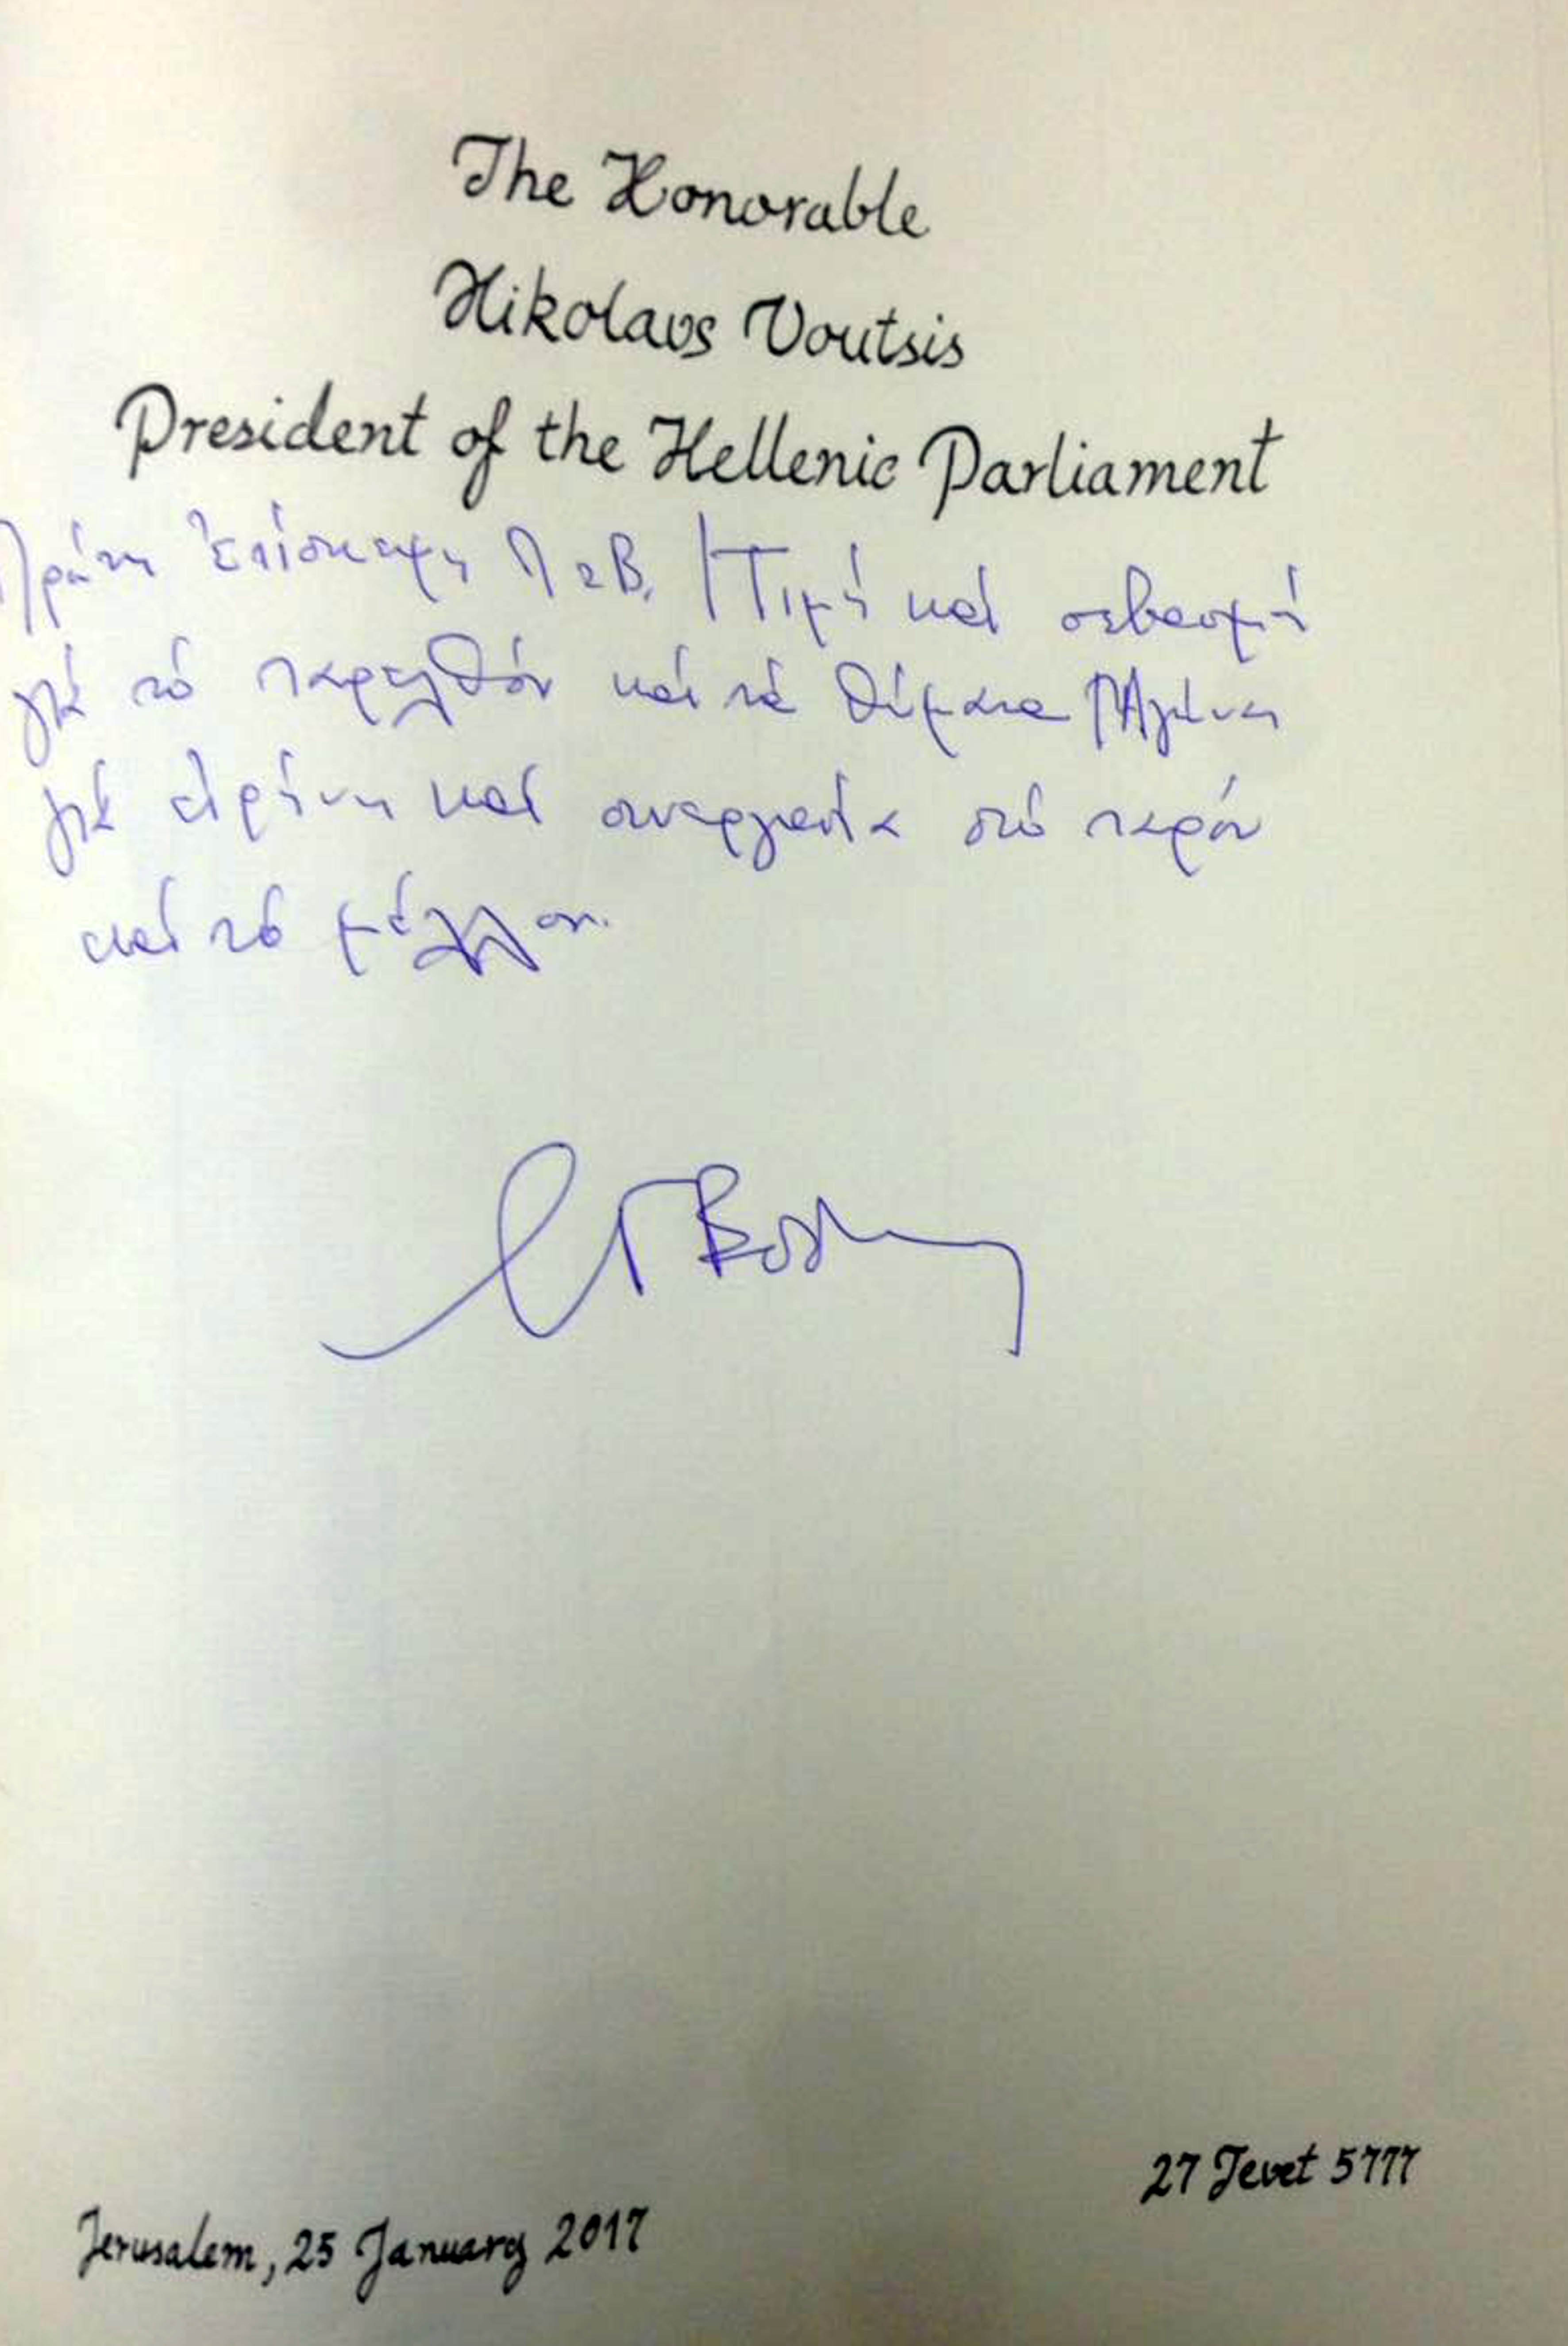 The Honorable
Nikolaos Voutsis
President of the Hellenic Parliament
Πρώτη Ἐπίσκεψη Π τ Β. / Τιμή καί σεβασμό
γιά τό παρελθόν καί τά θύματα / Ἀγώνας
γιά εἰρήνη καί συνεργασία στό παρόν
καί τό μέλλον.
27 Tevet 5777
Jerusalem, 25 January 2017